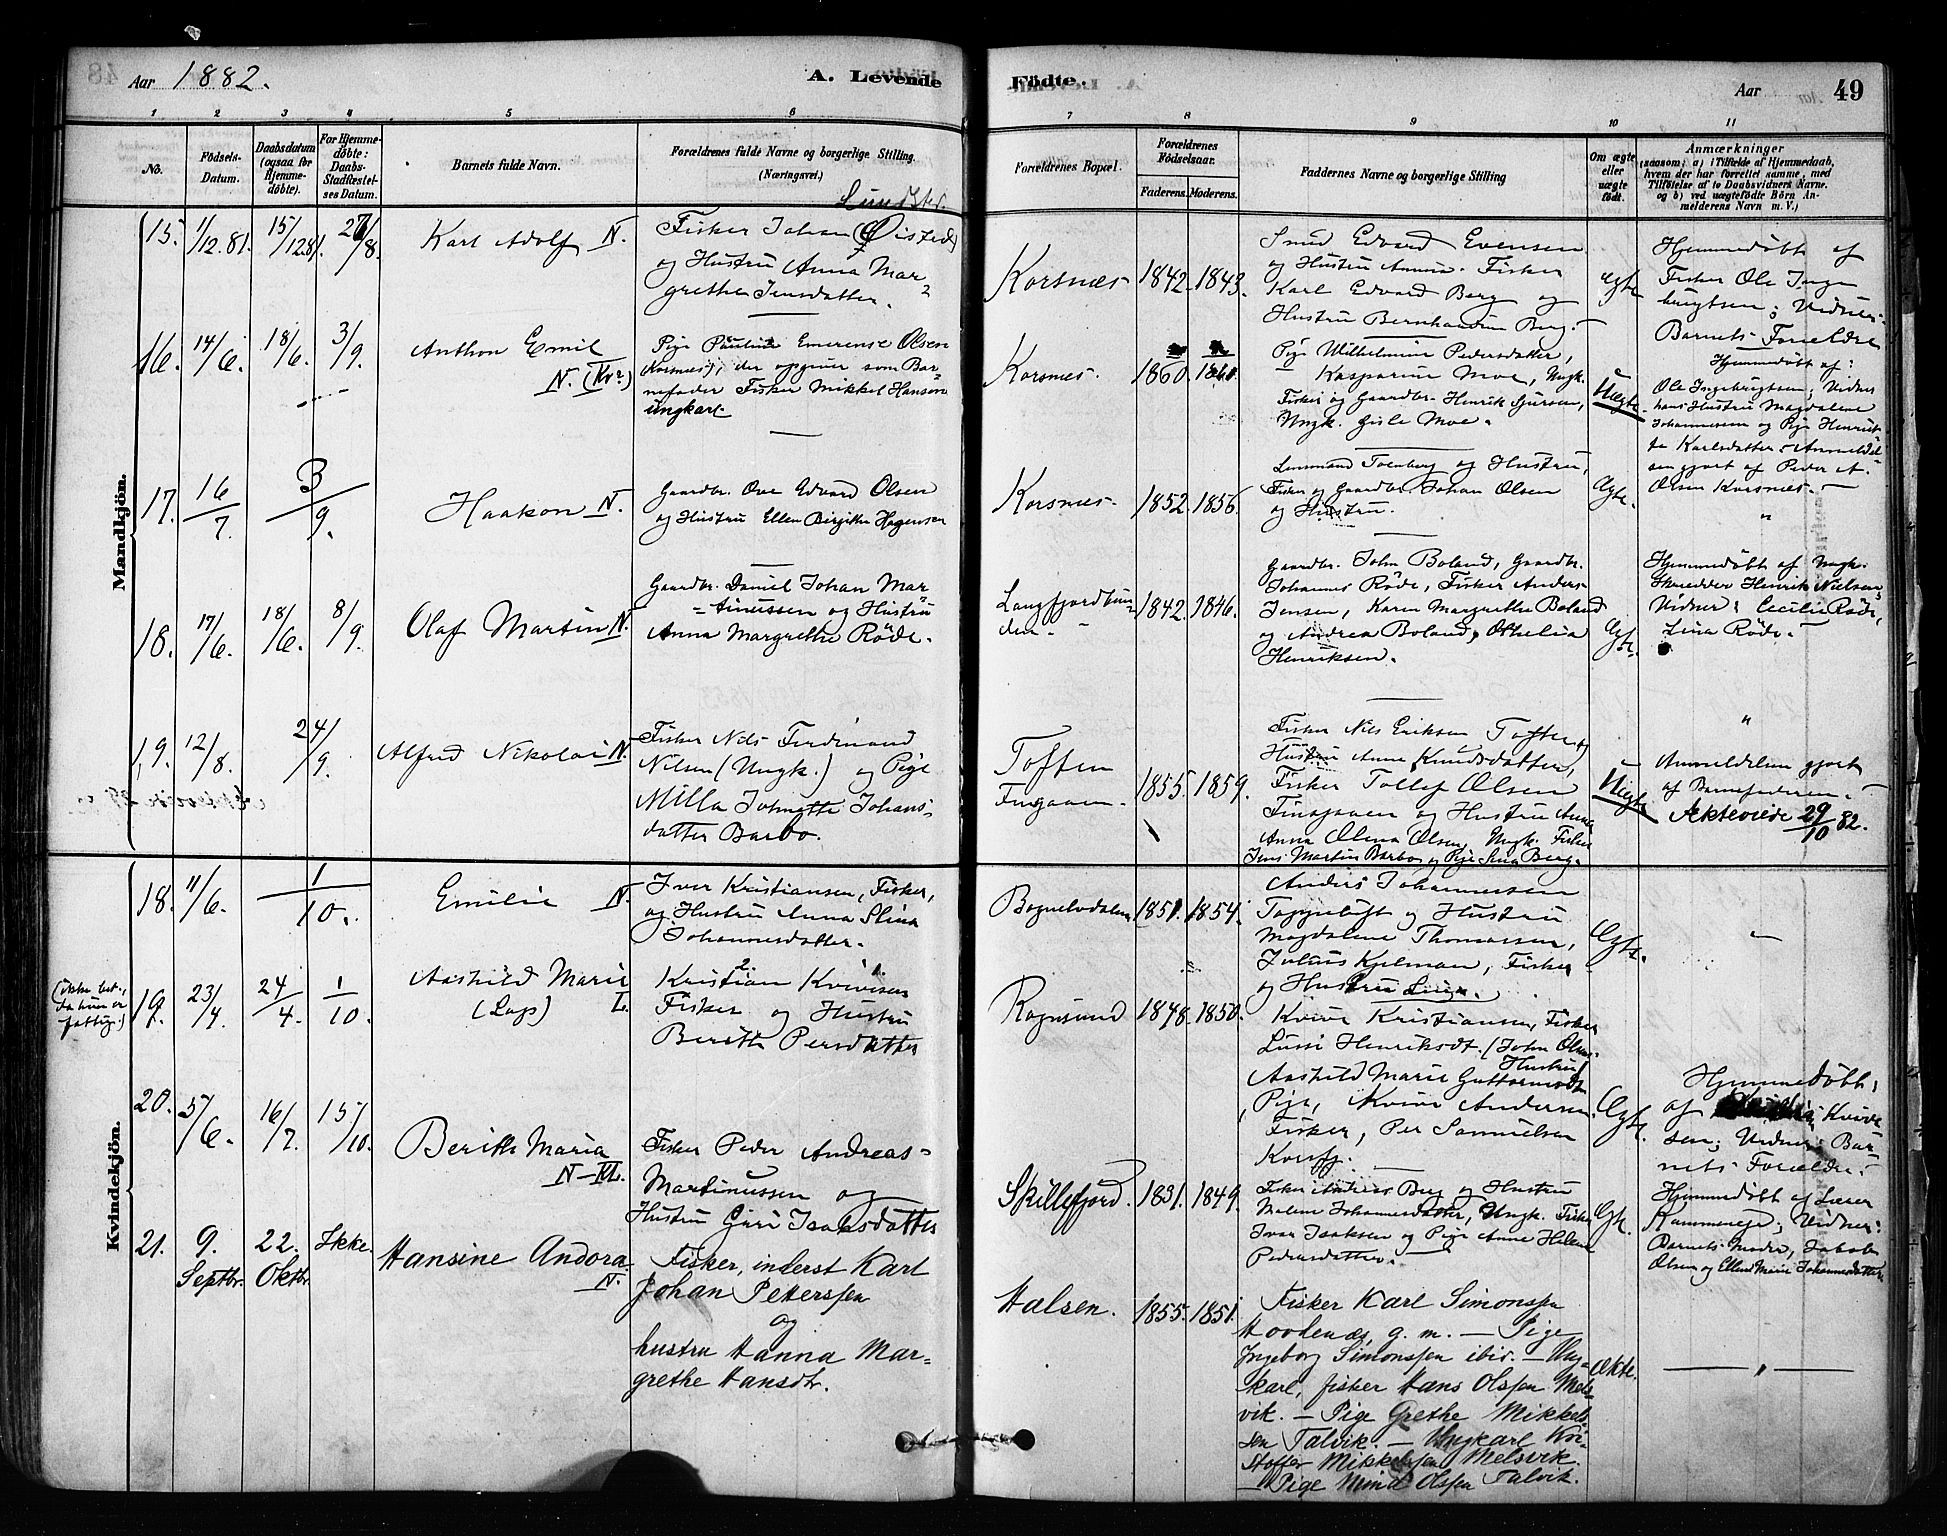 Aar 1882.
A. Levende
Födte.
Aar
49
1 2 3 4 5 6 7 8 9 10 11
No.
Födsels-
Datum.
Daabsdatum
(ogsaa for
Hjemme-
döbte).
For Hjemme-
döbte:
Daabs-
Stadfæstel-
ses Datum.
Barnets fulde Navn.
Forældrenes fulde Navne og borgerlige Stilling.
(Næringsvei.)
Forældrenes Bopæl.
Forældrenes
Födselsaar.
Faderens. Moderens.
Faddernes Navne og borgerlige Stilling
Om ægte
eller
uægte
födt.
Anmærkninger
(saasom: a) i Tilfælde af Hjemmedaab,
hvem der har forrettet samme, med
Tilföielse af to Daabsvidners Navne.
og b) ved uægtefödte Börn An-
melderens Navn m. V.)
Mandkjön.
15. 1/12.81. 15/12 81. 27/8.
Karl Adolf N.
Fisker Johan (Öisted)
og Hustru Anna Mar-
grethe Jensdatter.
Korsnæs 1842. 1843.
Edvard Evensen
og Hustru Anna. Fisker
Karl Edvard Berg og
Hustru Bernhardine Berg.
Ægte
Hjemmedøbt af
Fisker Ole Inge
brigtsen; Vidner:
Barnets Forældre
16. 14/6. 18/6. 3/9.
Anthon Emil
N. (Kv.)
Pige Pauline Emerense Olsen
Korsnæs, der opgiver som Bar-
nefader Fisker Mikkel Hansen
ungkarl.
Korsnæs. 1860. 1860.
Pige Wilhelmine Pedersdatter,
Kasparine Moe, Ungk.
Fisker og Gaardbr. Henrik Sjursen,
Ungk. Gisle Moe.
Uægte
Hjemmedøbt af:
Ole Ingebrigtsen; Vidner
hans Hustru Magdalene
Johannessen og Pige Henriet-
te Karlsdatter. Anmeldel-
sen gjort af Peder A.
Olsen Korsnæs.
17. 16/7. 3/9.
Haakon N.
Gaardbr. Ove Edvard Olsen
og Hustru Ellen Birgitte Hagensen
Korsnæs 1852. 1856.
Lensmand Tornberg og Hustru,
Fisker og Gaardbr. Johan Olsen
og Hustru.
Ægte.
"
18. 17/6. 18/6. 8/9.
Olaf Martin N.
Gaardbr. Daniel Johan Mar-
tinussen og Hustru
Anna Margrethe Røde.
Langfjordbun-
den 1842. 1846.
Gaardbr. John Boland, Gaardbr.
Johannes Røde, Fisker Anders
Jensen, Karen Margrethe Boland
og Andrea Boland, Othelia
Henriksen.
Ægte.
Hjemmedøbt af Ungk.
Skrædder Henrik Nielsen;
Vidner: Cecilie Røde,
Lina Røde.
19. 12/8. 24/9.
Alfred Nikolai N.
Fisker Nils Ferdinand
Nilsen (Ungk.) og Pige
Milla Johnette Johans-
datter Barbo.
Toften
1855. 1859.
Fisker Nils Eriksen Toften og
Hustru Anne Knudsdatter,
Fisker Tollef Olsen
og Hustru Anne
Anna Olena Olsen, Ungk. Fisker
Jens Martin Barbo og Pige Lina Berg.
Uægte
"
Anmeldelsen gjort
af Barnefaderen.
Ægteviede 29/10 82.
Kvindekjön.
18. 11/6. 1/10.
Emilie N.
Iver Kristiansen, Fisker,
og Hustru Anna Stina
Johannesdatter.
Bognelvdalen 1851. 1854.
Anders Johannessen
Toppeluft og Hustru
Magdalene Thomassen,
Julius Kjelman, Fisker
og Hustru Lina.
Ægte.
"
(ikke bet.,
da hun er
fattig.)
19. 23/4. 24/4. 1/10.
Aashild Marie
(Lap) L.
Kristian Kvivesen
Fisker og Hustru
Berith Persdatter
Rognsund 1848. 1850.
Kvive Kristiansen, Fisker
Lussi Henriksdt. (John Olsens
Hustru)
Aashild Marie Guttormsdt
Pige, Kvive Andersen
Fisker, Per Samuelsen
Korsfj.
Ægte.
Hjemmedøbt
af Kvive
sen; Vidner: Bar-
nets Forældre.
20. 5/6. 16/7. 15/10.
Berith Maria
N-KL.
Fisker Peder Andreas
Martinussen og
Hustru Guri Isaksdatter
Skillefjord. 1831. 1849.
Fisker Andreas Berg og Hustru
Malene Johannesdatter, Ungk. Fisker
Ivar Isaksen og Pige Anne Helene
Pedersdatter.
Ægte.
Hjemmedøbt af Lærer
Kammeneje; Vidner:
Barnets Moder, Jakob
Olsen og Ellen Marie Johannesdatter
21. 9. Septbr. 22. Oktbr. Ikke.
Hansine Andora N.
Fisker, inderst Karl
Johan Petterssen
og
hustru Hanna Mar-
grethe Hansdtr.
Halsen. 1855. 1851.
Fisker Karl Simonssen
Hovkenæs, g. m. — Pige
Ingeborg Simonssen ibid. — Ung-
karl, fisker Hans Olssen Mels-
vik. — Pige Grethe Mikkel-
sen Talvik. — Ungkarl Kri-
stoffer Mikkelssen Melsvik.
— Pige Mina Olssen Talvik.
Ækte.
— " —